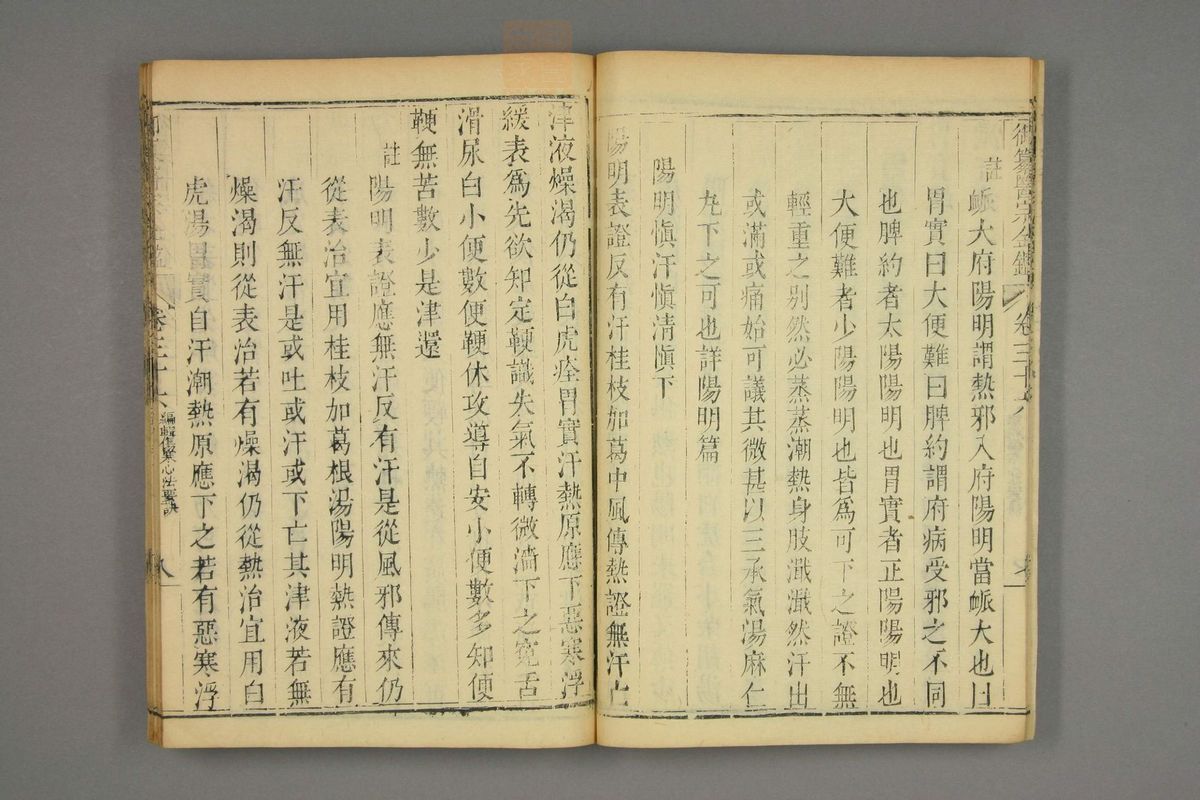 御纂醫宗金鑑 卷三十六
註 䘐大府陽明謂熱邪入府陽明當䘐大也曰
胃實曰大便難曰脾約謂府病受邪之不同
也脾約者太陽陽明也胃實者正陽陽明也
大便難者少陽陽明也皆為可下之證不無
輕重之別然必蒸蒸潮熱身肢濈濈然汗出
或滿或痛始可議其微甚以三承氣湯麻仁
丸下之可也詳陽明篇
陽明慎汗慎清慎下
陽明表證反有汗桂枝加葛中風傳熱證無汗亡
津液燥渴仍從白虎痊胃實汗熱原應下惡寒浮
緩表為先欲知定鞕識失氣不轉微溏下之寃舌
滑尿白小便數便鞕休攻導自安小便數多知便
鞕無苦數少是津還
註 陽明表證應無汗反有汗是從風邪傳來仍
從表治宜用桂枝加葛根湯陽明熱證應有
汗反無汗是或吐或汗或下亡其津液若無
燥渴則從表治若有燥渴仍從熱治宜用白
虎湯胃實自汗潮熱原應下之若有惡寒浮
卷三十六 編輯傷寒心法要訣 八